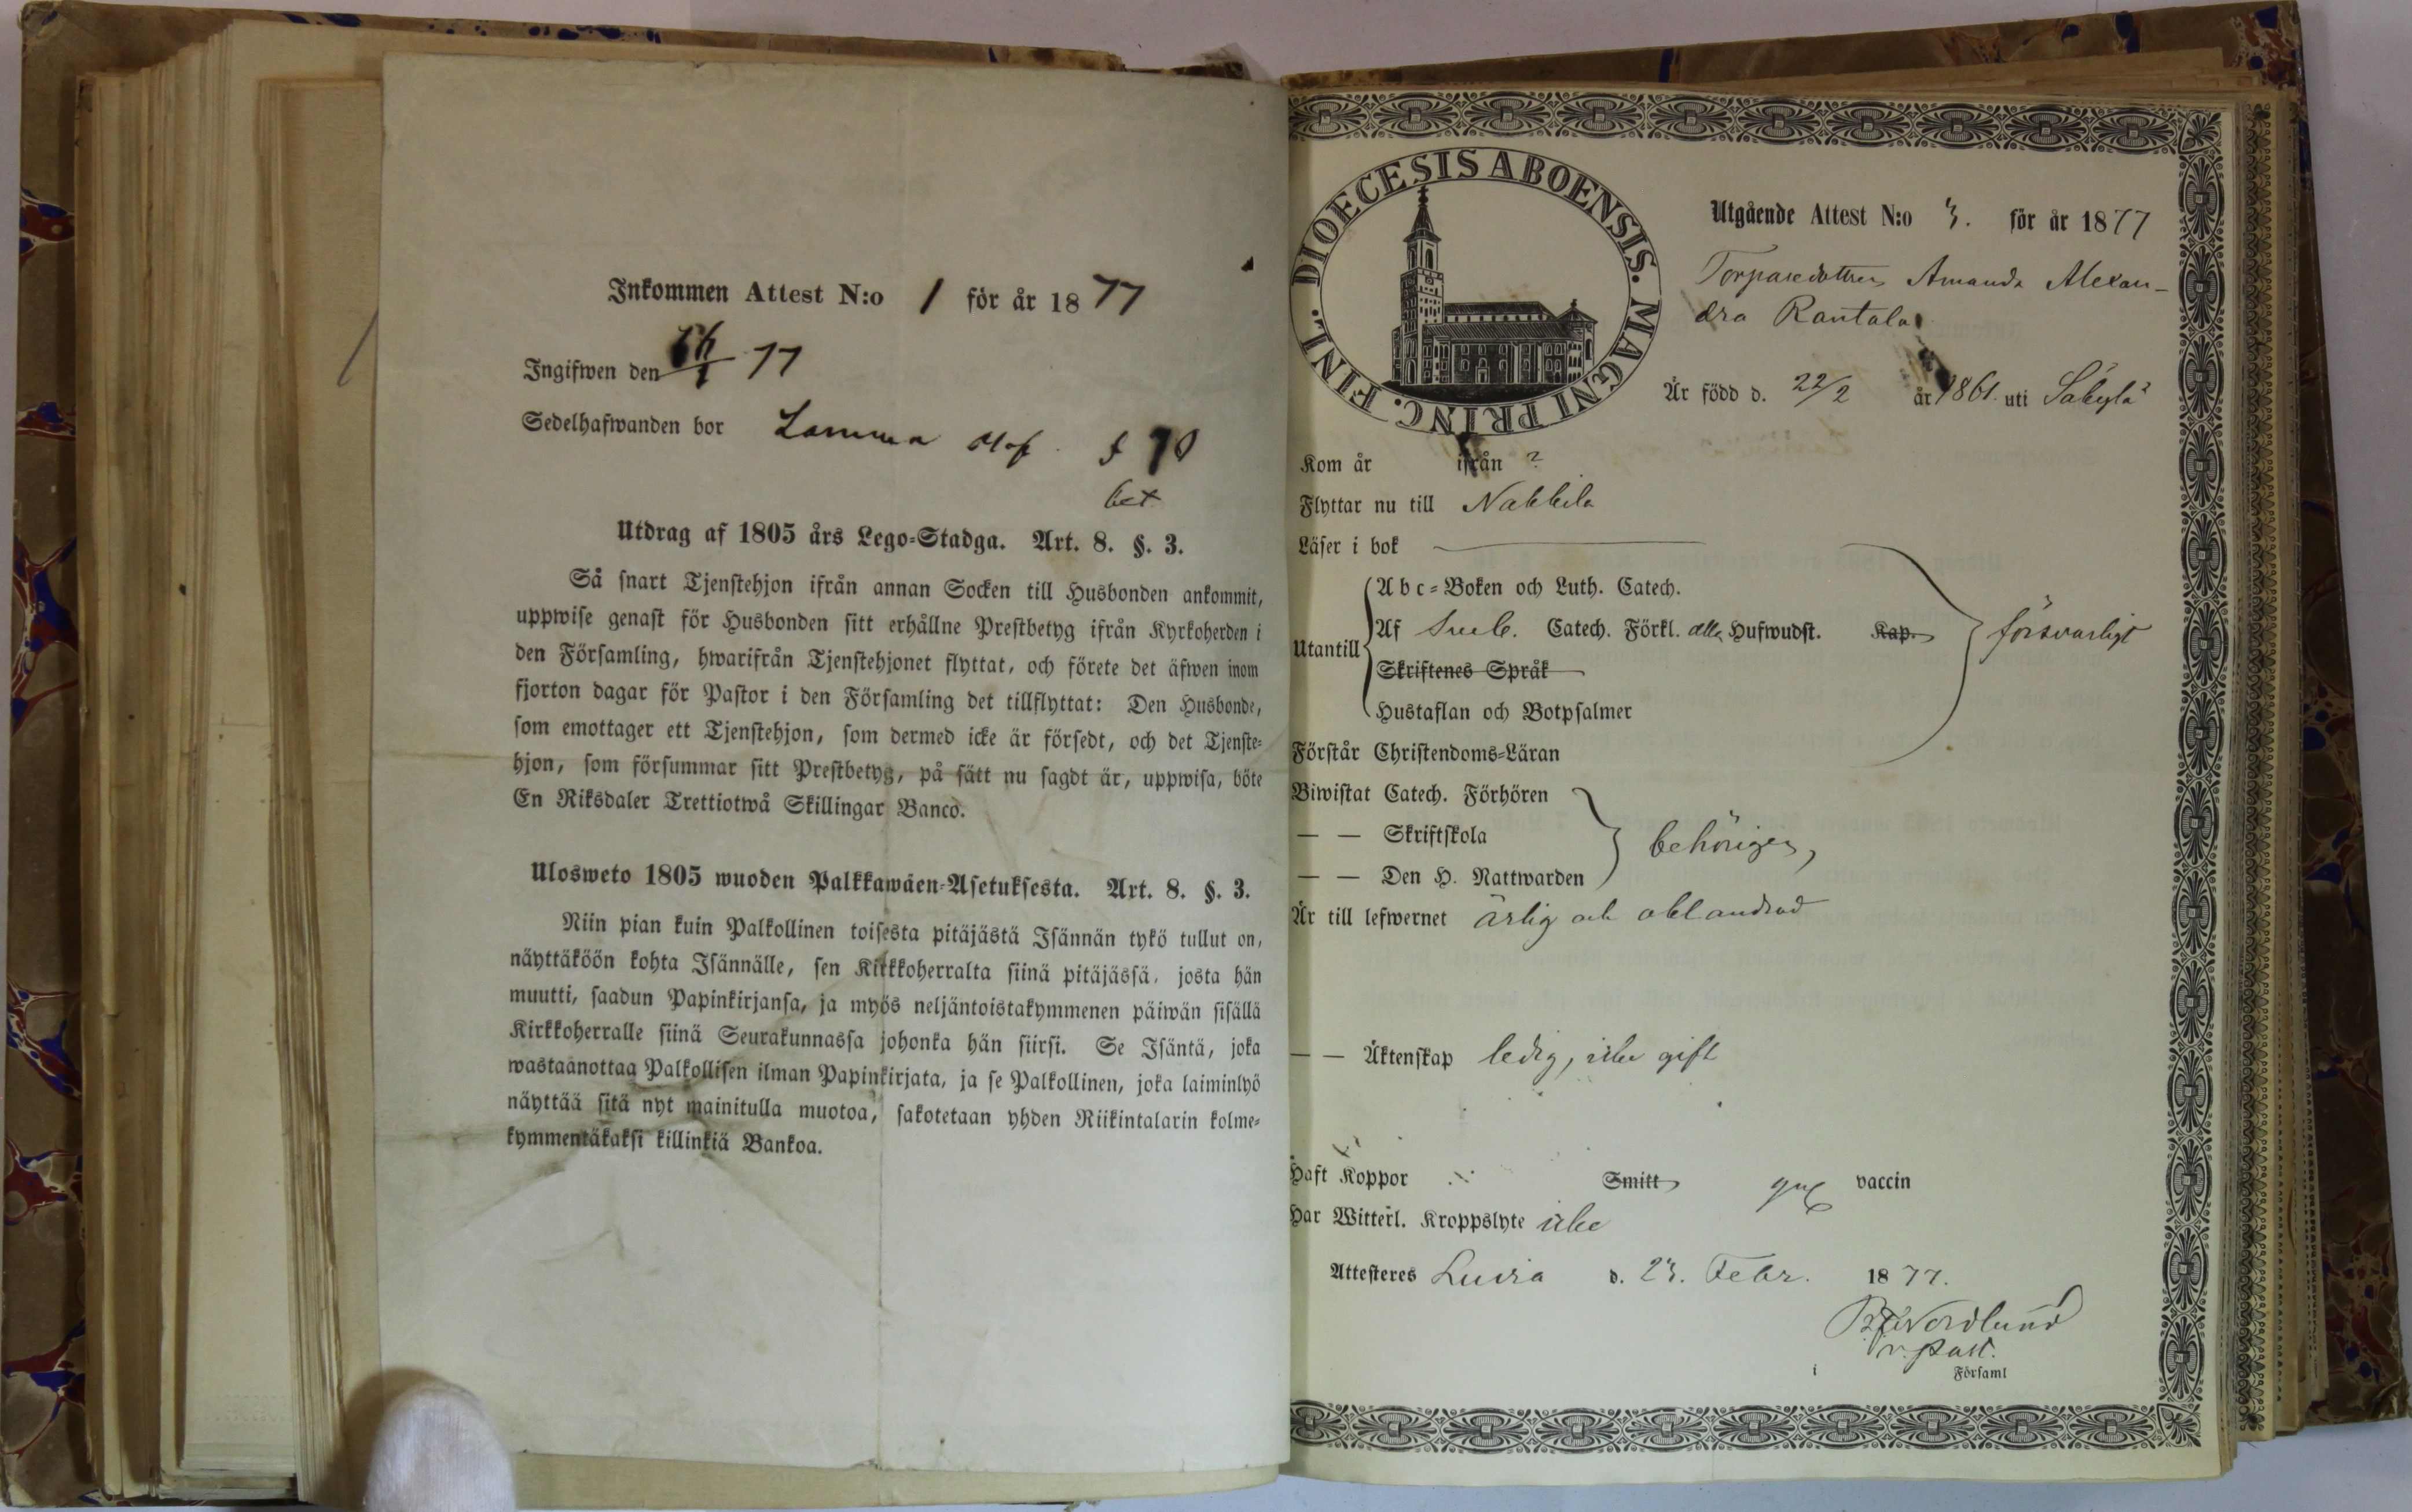 Inkommen Attest N:o 1 för år 1877
Ingifwen den 77
Sedelhafwanden bor
bet
Utdrag af 1805 års Lego-Stadga. Art. 8. §. 3.
Så snart Tjenstehjon ifrån annan Socken till Husbonden ankommit,
uppwise genast för Husbonden sitt erhållne Prestbetyg ifrån Kyrkoherden i
den Församling, hwarifrån Tjenstehjonet flyttat, och förete det äfwen inom
fjorton dagar för Pastor i den Församling det tillflyttat: Den Husbonde,
som emottager ett Tjenstehjon, som dermed icke är försedt, och det Tjenste-
hjon, som försummar sitt Prestbetyg, på sätt nu sagdt är, uppwisa, böte
En Riksdaler Trettiotwå Skillingar Banco.
Ulosweto 1805 wuoden Palkkawäen-Asetuksesta. Art. 8. §. 3.
Niin pian kuin Palkollinen toisesta pitäjästä Isännän tykö tullut on,
näyttäköön kohta Isännälle, sen Kirkkoherralta siinä pitäjässä, josta hän
muutti, saadun Papinkirjansa, ja myös neljäntoistakymmenen päiwän sisällä
Kirkkoherralle siinä Seurakunnassa johonka hän siirsi. Se Isäntä, joka
wastaanottaa Palkollisen ilman Papinkirjata, ja se Palkollinen, joka laiminlyö
näyttää sitä nyt mainitulla muotoa, sakotetaan yhden Riikintalarin kolme-
kymmentäkaksi killinkiä Bankoa.
DIOECESIS ABOENSIS. MAGNI PRINC. FINL.
Utgående Attest N:o 3. för år 1877
Torparedottren Amanda Alexan-
dra Rantala
Är född d. 22/2 år 1861. uti Säkylä
Kom år ifrån ?
Flyttar nu till Nakkila
Läser i bok
Abc-Boken och Luth. Catech.
Utantill Af Sveb. Catech. Förkl. alla Hufwudst. Kap. försvarligt
Skriftenes Språk
Hustaflan och Botpsalmer
Förstår Christendoms-Läran
Biwistat Catech. Förhören
— — Skriftskola behörigen,
— — Den H. Nattwarden
Är till lefwernet ärlig och oklandrad
— — Äktenskap ledig, icke gift
Haft Koppor Smitt vaccin
Har Witterl. Kroppslyte icke
Attesteres Luvia d. 23. Febr. 1877.
Nordlund
v. past.
i Församl